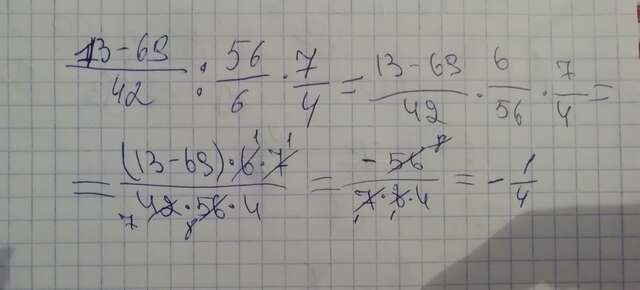 (13-69)/42 : 56/6 · 7/4 = (13-69)/42 · 6/56 · 7/4 =
= ((13-69)·6·7)/(42·56·4) = (-56)/(7·8·4) = -1/4